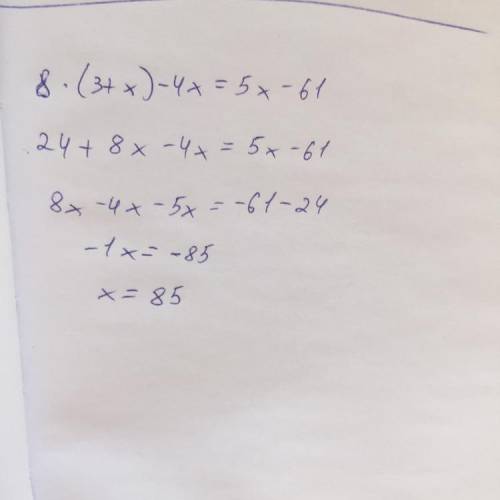 8 · (3+x) - 4x = 5x - 61
24 + 8x - 4x = 5x - 61
8x - 4x - 5x = -61 - 24
-1x = -85
x = 85